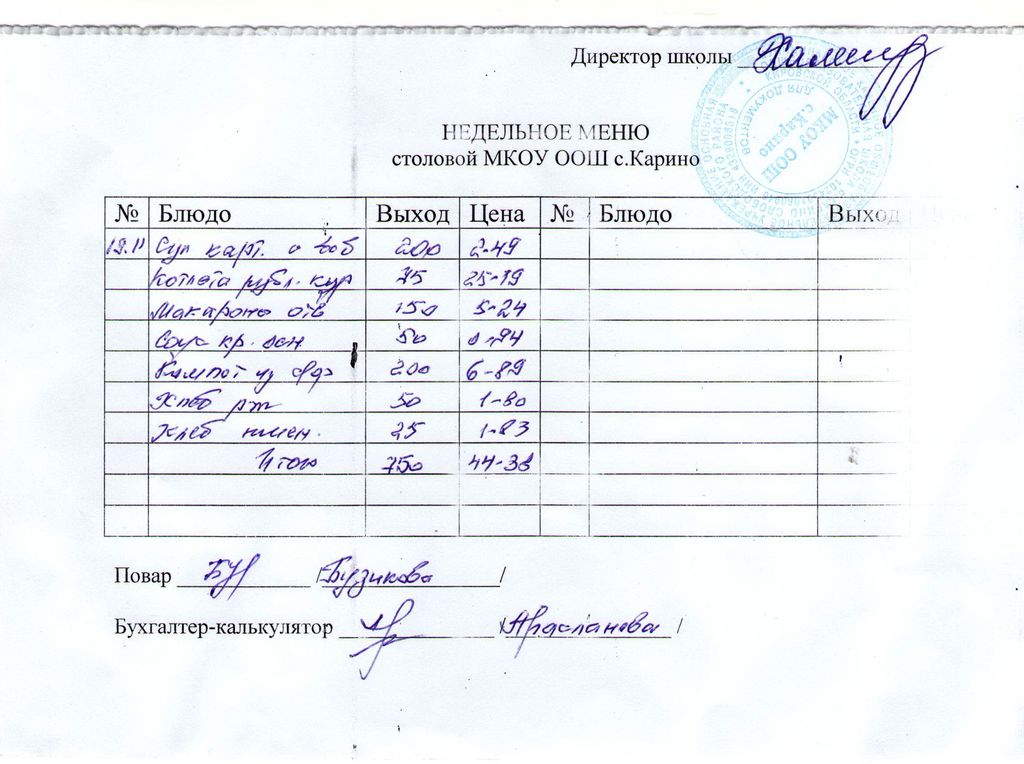 Директор школы
НЕДЕЛЬНОЕ МЕНЮ
столовой МКОУ ООШ с.Карино
№ Блюдо Выход Цена № Блюдо Выход Цена
19.11 Суп карт. с боб 200 2-49
Котлета рубл. кур 75 25-19
Макароны отв 150 5-24
Соус кр. осн. 50 0-94
Компот из 200 6-89
Хлеб рж 50 1-80
Хлеб пшен. 25 1-83
Итого 750 44-38
Повар / Бузикова /
Бухгалтер-калькулятор / Арасланова /
МКОУ ООШ
с.Карино
ДЛЯ ДОКУМЕНТОВ